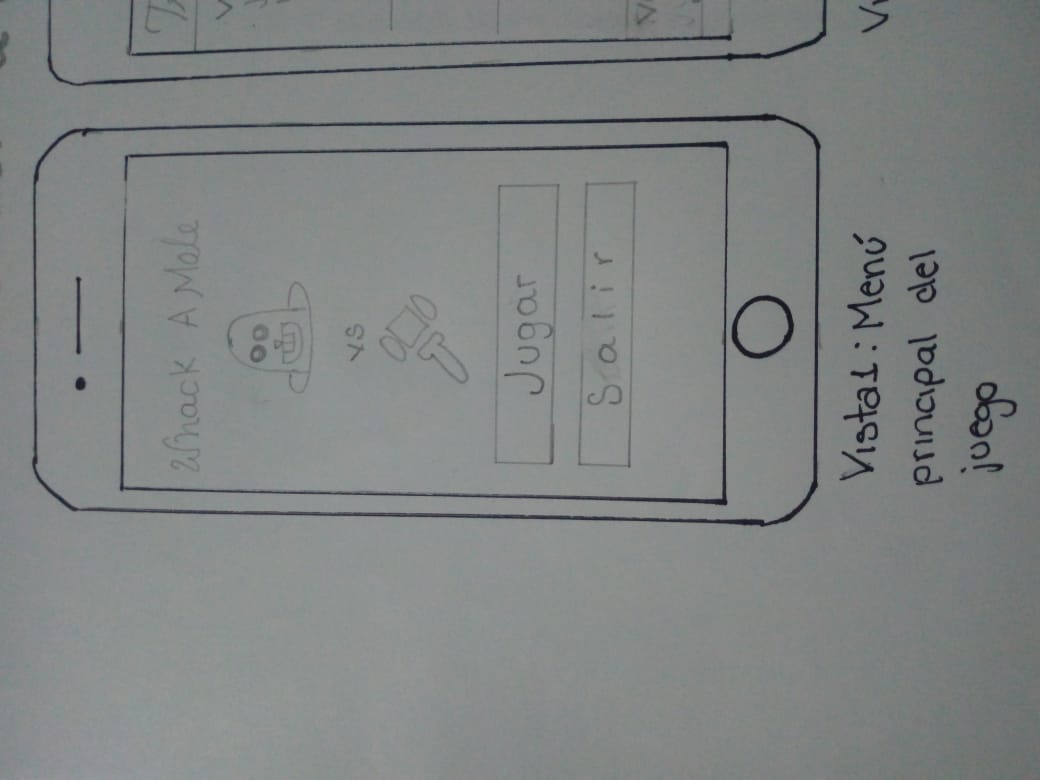 Whack A Mole
vs
Jugar
Salir
Vista1: Menú
principal del
juego